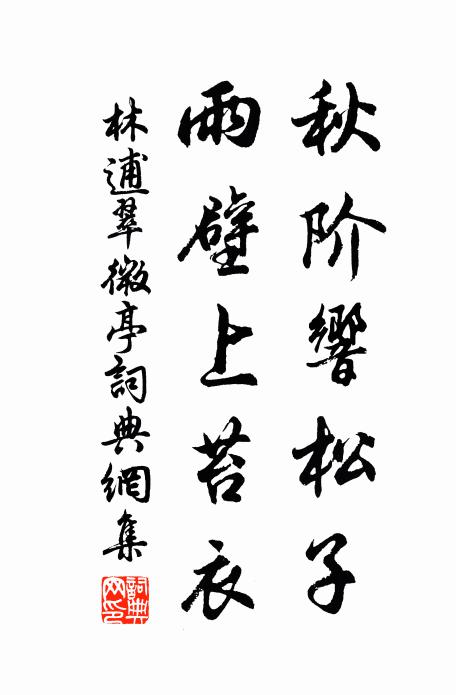 秋阶響松子
雨壁上苔衣
林逋翠微亭詞典網集
詞典网印